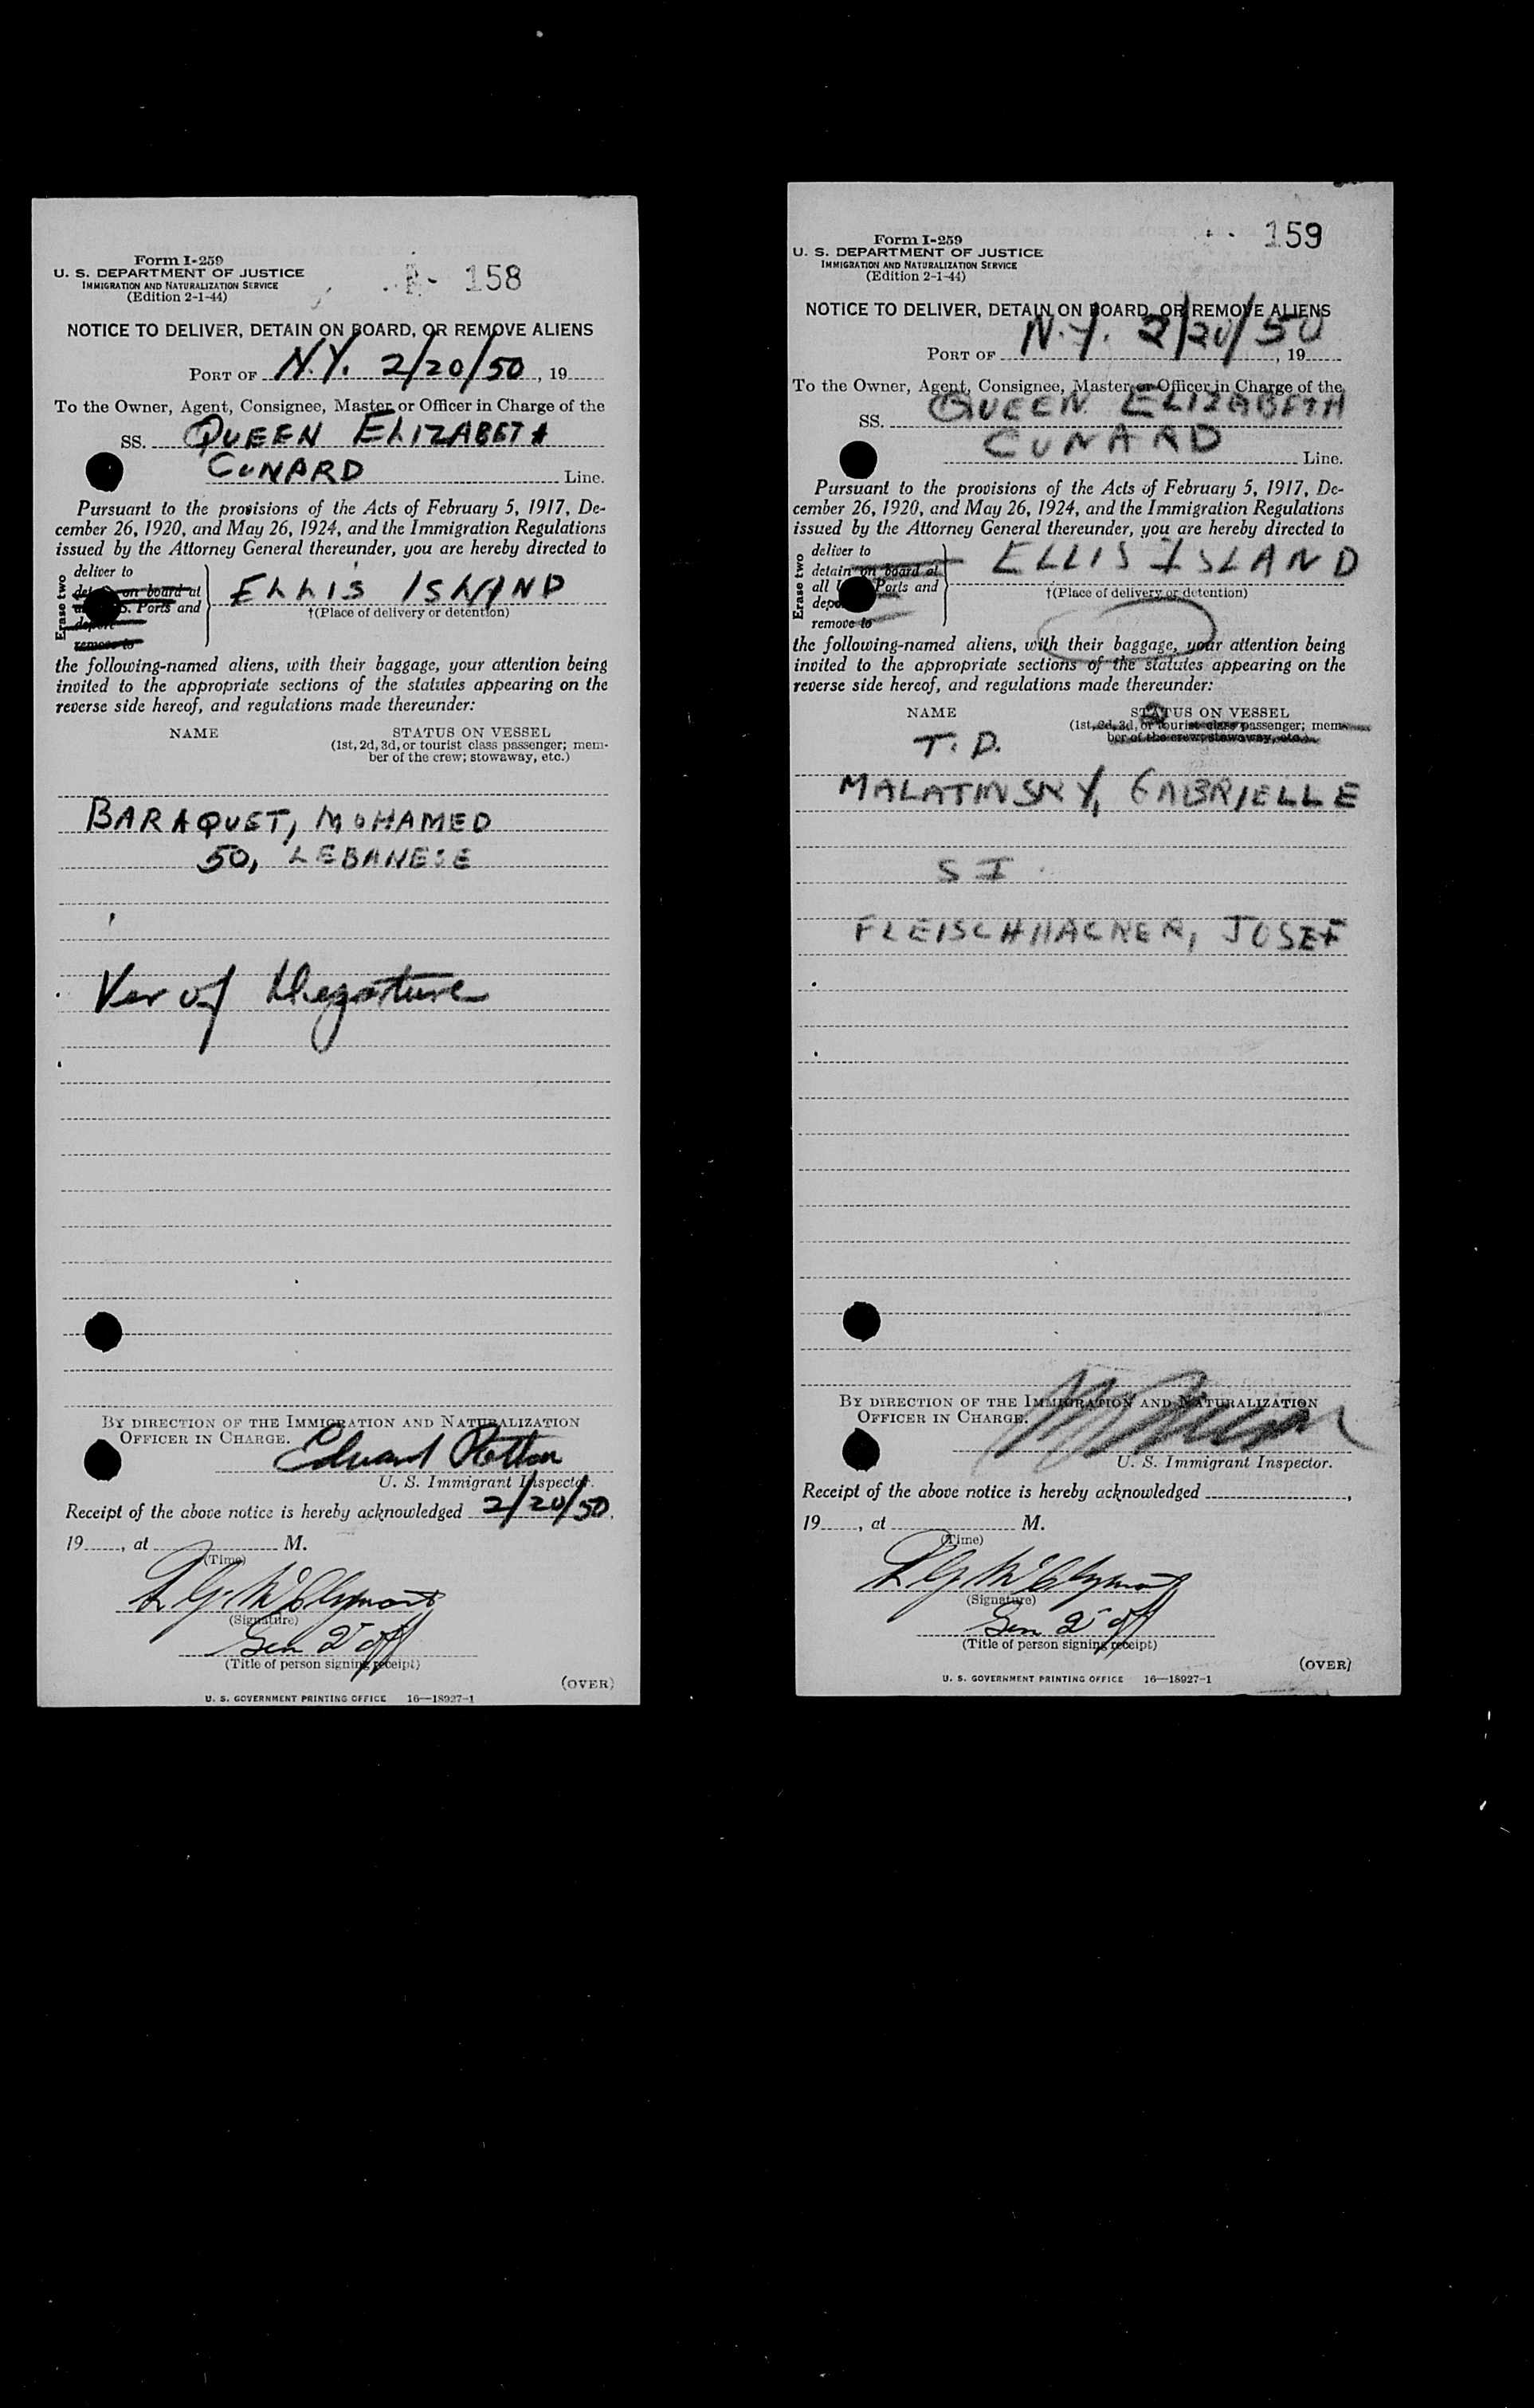 Form I-259
U. S. DEPARTMENT OF JUSTICE
IMMIGRATION AND NATURALIZATION SERVICE
(Edition 2-1-44)
158
NOTICE TO DELIVER, DETAIN ON BOARD, OR REMOVE ALIENS
PORT OF N.Y. 2/20/50, 19
To the Owner, Agent, Consignee, Master or Officer in Charge of the
SS. QUEEN ELIZABETH
CUNARD Line.
Pursuant to the provisions of the Acts of February 5, 1917, De-
cember 26, 1920, and May 26, 1924, and the Immigration Regulations
issued by the Attorney General thereunder, you are hereby directed to
Erase two
deliver to
on board at
S. Ports and
deport
remove to
ELLIS ISLAND
†(Place of delivery or detention)
the following-named aliens, with their baggage, your attention being
invited to the appropriate sections of the statutes appearing on the
reverse side hereof, and regulations made thereunder:
NAME STATUS ON VESSEL
(1st, 2d, 3d, or tourist class passenger; mem-
ber of the crew; stowaway, etc.)
BARAQUET, MOHAMED
50, LEBANESE
Ver of
BY DIRECTION OF THE IMMIGRATION AND NATURALIZATION
OFFICER IN CHARGE.
Edward
U. S. Immigrant Inspector.
Receipt of the above notice is hereby acknowledged 2/20/50,
19, at M.
(Time)
(Signature)
(Title of person signing receipt)
(OVER)
U. S. GOVERNMENT PRINTING OFFICE 16—18927-1
159
Form I-259
U. S. DEPARTMENT OF JUSTICE
IMMIGRATION AND NATURALIZATION SERVICE
(Edition 2-1-44)
NOTICE TO DELIVER, DETAIN ON BOARD, OR REMOVE ALIENS
PORT OF N.Y. 2/20/50, 19
To the Owner, Agent, Consignee, Master or Officer in Charge of the
SS. QUEEN ELIZABETH
CUNARD Line.
Pursuant to the provisions of the Acts of February 5, 1917, De-
cember 26, 1920, and May 26, 1924, and the Immigration Regulations
issued by the Attorney General thereunder, you are hereby directed to
Erase two
deliver to
detain on board at
all Ports and
remove to
ELLIS ISLAND
†(Place of delivery or detention)
the following-named aliens, with their baggage, your attention being
invited to the appropriate sections of the statutes appearing on the
reverse side hereof, and regulations made thereunder:
NAME STATUS ON VESSEL
(1st, 2d, 3d, or tourist class passenger; mem-
ber of the crew; stowaway, etc.)
T. D.
MALATINSKY, GABRIELLE
S I
FLEISCHHACKER, JOSEF
BY DIRECTION OF THE IMMIGRATION AND NATURALIZATION
OFFICER IN CHARGE.
U. S. Immigrant Inspector.
Receipt of the above notice is hereby acknowledged ,
19, at M.
(Time)
(Signature)
(Title of person signing receipt)
(OVER)
U. S. GOVERNMENT PRINTING OFFICE 16—18927-1